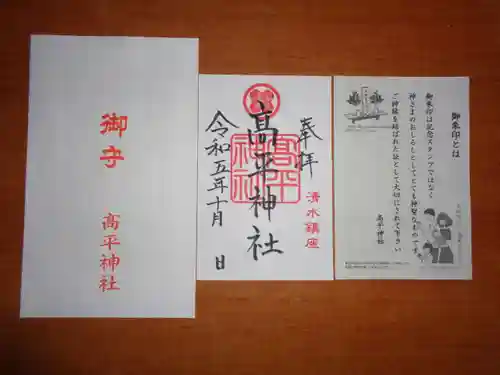 御守
高平神社
奉拝
清水鎮座
高平神社
高平神社
令和五年十月 日
御朱印とは
御朱印は記念スタンプではなく
神さまのおしるしとしてとても神聖なものです
ご神縁を結ばれた証として大切にされて下さい
高平神社